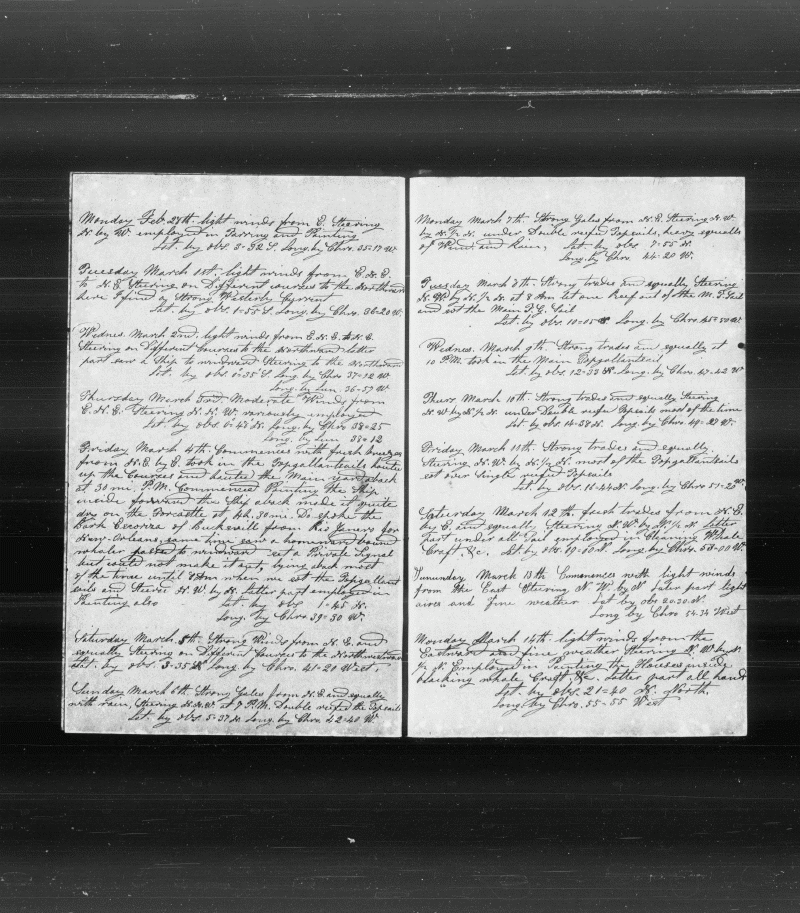 Monday Feb. 28th. light winds from E. Steering
N by W. employed in Tarring and Painting
Lat. by obs. 3-52 S. Long. by Chro. 35-17 W.
Tuesday March 1st. light winds from E.N.E.
to N.E. Steering on Different courses to the Northward
here I find a Strong Westerly Current
Lat. by obs. 1-55 S. Long. by Chro. 36-20 W.
Wednes. March 2nd. light winds from E.N.E. to N.E.
Steering on Different Courses to the Northward latter
part saw a Ship to windward Steering to the Northward
Lat. by obs. 0-35 S. Long. by Chro 37-12 W.
Long. by Lun. 36-57 W.
Thursday March 3rd Moderate Winds from
E.N.E. Steering N.N.W. variously employed
Lat. by obs 0-48 N. Long. by Chro 38-25
Long. by Lun 38-12
Friday March 4th. Commences with fresh breezes
from N.E. by E. took in the Topgallantsails
up the Courses and hauled the Main yard aback
at 30 mi. P.M. Commenced Painting the Ship
inside forward the Ship aback made it quite
dry on the Forcastle at 4h. 30 mi. Do spoke the
Bark Enoriza of Bucksville from Rio Janero for
New-Orleans, same time saw a homeward bound
whaler to windward set a Private Signal
but could not make it out, lying aback most
of the time until 8 Am. when we set the Topgallant
sails and Steered N.W. by N. Latter part employed in
Painting also Lat. by obs. 1-45 N.
Long. by Chro 39-30 W.
Saturday March 5th. Strong Winds from N.E. and
squally Steering on Different Courses to the Northwestward
Lat. by obs. 3-35 N Long. by Chro. 41-20 West
Sunday March 6th Strong Gales from N.E. and squally
with rain, Steering N.N.W. at 7 P.M. Double reefed the Topsails
Lat. by obs 5-37 N. Long. by Chro 42-40 W.
Monday March 7th. Strong Gales from N.E. Steering N.W.
by N.½ N. under Double reefed Topsails, heavy squalls
of Wind and Rain, Lat. by obs 7-55 N.
Long. by Chro. 44-20 W.
Tuesday March 8th. Strong trades and squally Steering
N.W. by N.½ N. at 8 Am let one Reef out of the M.T. Sail
and set the Main T.G. Sail
Lat. by obs. 10-05 N. Long. by Chro 45-50 W.
Wednes. March 9th Strong trades and squally at
10 P.M. took in the Main Topgallantsail
Lat by obs 12-33 N Long. by Chro. 47-42 W.
Thurs March 10th Strong trades and squally Steering
N.W by N.½ N. under Double reefed Topsails most of the time
Lat by obs 14-38 N. Long. by Chro 49-27 W.
Friday March 11th. Strong trades and squally.
Steering N.W. by N.½ N. most of the Topgallantsails
set over Single reefed Topsails
Lat. by obs. 16-44 N. Long by Chro. 51-2 W.
Saturday March 12th fresh trades from N.E.
by E. and squally Steering N.W. by N.½ N. Latter
Part under all Sail employed in Cleaning Whale
Craft, &c. Lat. by obs 19-10 N. Long by Chro. 53-00 W.
Sunnday March 13th Commences with light winds
from the East Steering N.W. by N Later part light
aires and fine weather Lat by obs 20.30 N.
Long by Chro 54.34 West
Monday March 14th. light winds from the
Eastward and fine weather Steering N.W. by N.
½ N. Employed in Painting the Houses inside
blacking whale Craft, &c. Latter part all hands
Lat. by obs. 21-40 N. North.
Long. by Chro. 55-55 West